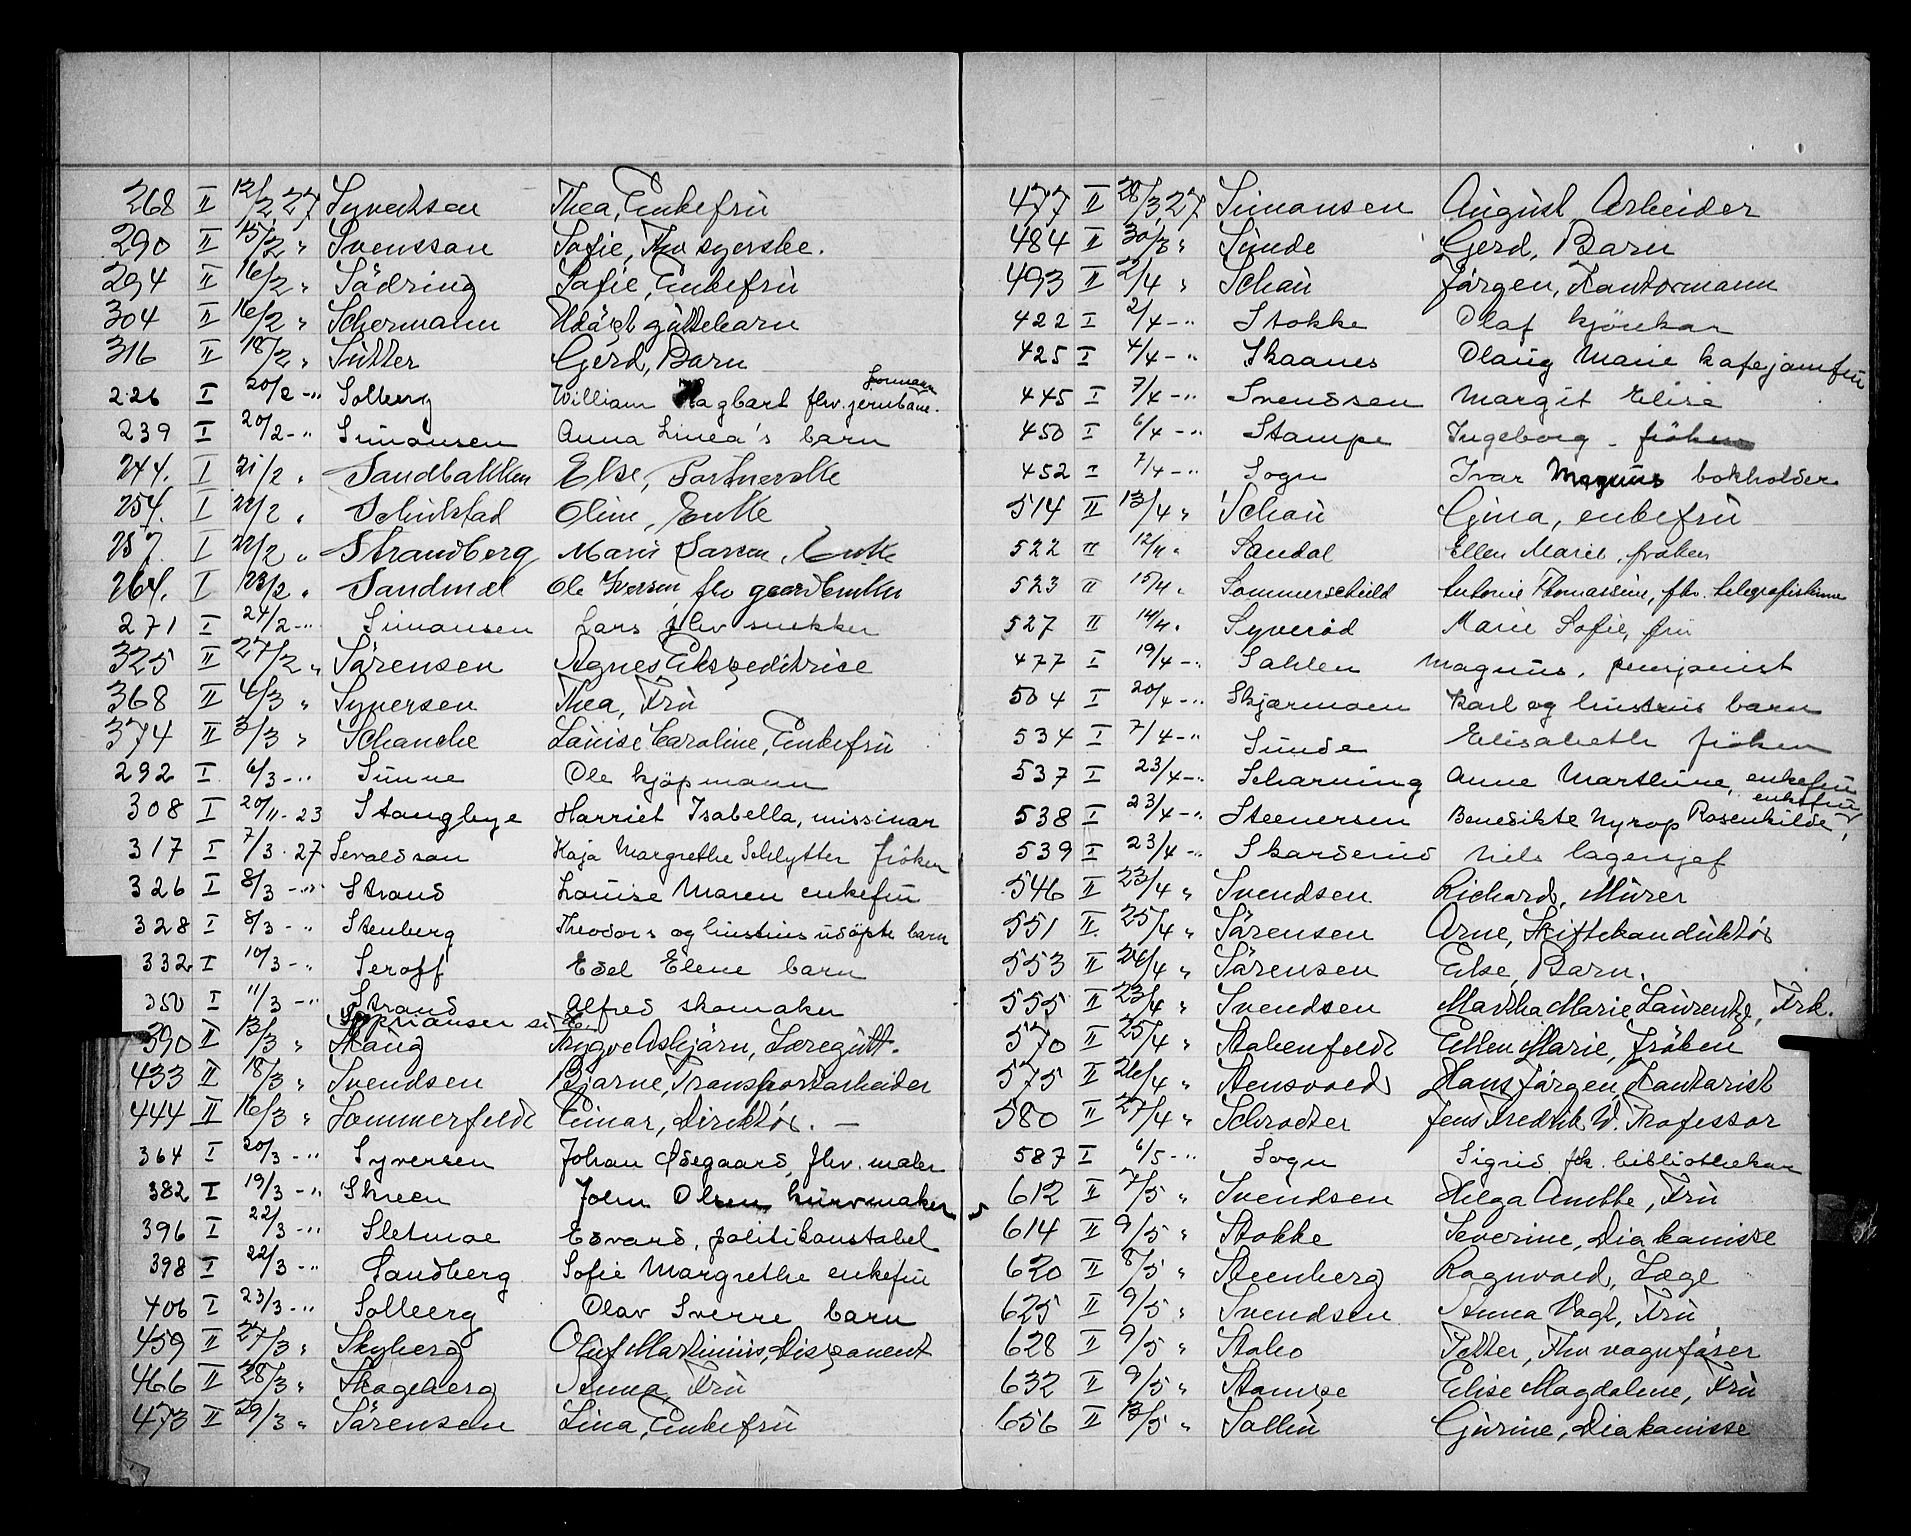 268 II 12/2 27 Syvertsen Thea, Enkefru
290 II 15/2 " Svensson Sofie, Fhv syerske.
294 II 16/2 " Södring Sofie, Enkefru
304 II 16/2 " Schermann Udöpt guttebarn
316 II 18/2 " Sutter Gerd, Barn
226 I 20/2 -" Solberg William Dagbart fhv. jernbane. formann
239 I 20/2 -" Simonsen Anna Linea's barn
244. I 21/2 " Sandbakken Else, Portnerske
254. I 22/2 " Schulstad Oline, Enke
257. I 22/2 " Strandberg Marie Larsen, Enke
264. I 23/2 " Sandmel Ole Iversen, fhv gaardbruker
271 I 24/2 -" Simonsen Lars fhv snekker
325 II 27/2 " Sörensen Agnes Ekspeditrise
368 II 4/3 " Syversen Thea, Fru
374 II 3/3 " Schanche Louise Caroline, Enkefru
292 I 6/3 -" Sunne Ole kjöpmann
308 I 20/11-23 Stangbye Harriet Isabella, missionær
317 I 7/3-27 Sevaldson Kaja Margrethe Schlytter fröken
326 I 8/3 -" Strand Louise Maren enkefru
328 I 8/3 -" Stenberg Theodors og hustrus udöpte barn
332 I 10/3 -" Seroff Edel Elene barn
350 I 11/3 -" Strand Alfred skomaker
390 II 13/3 " Skaug Trygve Asbjörn, Læregutt.
433 II 18/3 " Svendsen Bjarne, Transportarbeider
444 II 16/3 " Sommerfeldt Einar, Direktör. —
364 I 20/3 -" Syversen Johan Ødegaard, fhv. maler
382 I 19/3 -" Skreen John Olsen, kurvmaker
396 I 22/3 -" Sletmoe Edvard, politikonstabel
398 I 22/3 -" Sandberg Sofie Margrethe enkefru
406 I 23/3 -" Solberg Olav Sverre barn
459 II 27/3 " Skyberg Oluf Martinius, Disponent
466 II 28/3 " Skogeberg Anna, Fru
473 II 29/3 " Sörensen Lina, Enkefru
477 II 28/3 27 Simonsen August Arbeider
484 II 30/3 " Sunde Gerd, Barn
493 II 2/4 " Schou Jörgen, Kontormann
422 I 2/4 -" Stokke Olaf kjörekar
425 I 4/4 -" Skaanes Olaug Marie kafejomfru
445 I 7/4 -" Svendsen Margit Elise
450 I 6/4 -" Stampe Ingeborg - fröken
452 I 7/4 -" Sogn Ivar Magnus bokholder
514 II 13/4 " Schou Gina, enkefru
522 II 12/4 " Sandal Ellen Marie, fröken
523 II 15/4 " Sommerschield Antonie Thomassine, fhv. telegrafistinne
527 II 14/4 " Syveröd Marie Sofie, fru
477 I 19/4 -" Sahlen Magnus, pensjonist
504 I 20/4 -" Skjærmoen Karl og hustrus barn
534 I 7/4 -" Sunde Elisabeth fröken
537 I 23/4 -" Scharning Anne Marthine, enkefru
538 I 23/4 -" Steenersen Benedikte Nyrop Rosenkilde, enkefru
539 I 23/4 -" Skarderud Nils lagersjef
546 II 23/4 " Svendsen Richard, Murer
551 II 25/4 " Sörensen Arne, Skiftekonduktör
553 II 26/4 " Sörensen Else, Barn.
555 II 23/4 " Svendsen Martha Marie Laurentze, Frk.
570 II 25/4 " Stabenfeldt Ellen Marie, Fröken
575 II 26/4 " Stensvold Hans Jörgen, Kontorist
580 II 27/4 " Schroeter Jens Fredrik W. Professor
587 I 6/5 -" Sogn Sigrid, frk. bibliothekar
612 II 7/5 " Svendsen Helga Anette, Fru
614 II 9/5 " Stokke Severine, Diakonisse
620 II 8/5 " Steenberg Ragnvald, Læge
625 II 9/5 " Svendsen Anna Vogt, Fru
628 II 9/5 " Stabo Petter, Fhv vognförer
632 II 9/5 " Stampe Elise Magdalene, Fru
656 II 13/5 " Sollin Gurine, Diakonisse